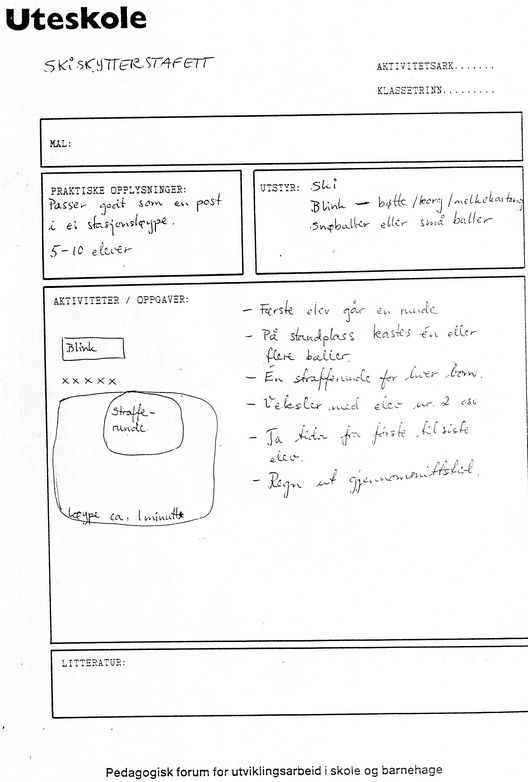 Uteskole
SKISKYTTERSTAFETT
AKTIVITETSARK.......
KLASSETRINN.........
MÅL:
PRAKTISKE OPPLYSNINGER:
Passer godt som en post
i ei stasjonsløype.
5-10 elever
UTSTYR: Ski
Blink — bøtte/korg/melkekartong
Snøballer eller små baller
AKTIVITETER / OPPGAVER:
- Første elev går en runde
- På standplass kastes én eller
flere baller.
- Én strafferunde for hver bom.
- Veksler med elev nr. 2 osv
- Ta tida fra første til siste
elev.
- Regn ut gjennomsnittstid.
Blink
x x x x x
Straffe-
runde
Løype ca. 1 minutt
LITTERATUR:
Pedagogisk forum for utviklingsarbeid i skole og barnehage